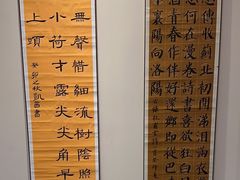 傳收薊北初聞涕淚滿衣
愁何在漫卷詩書喜欲狂
酒青春作伴好還鄉即從巴
下襄陽向洛陽
無聲惜細流樹陰照
小荷才露尖尖角早
上頭
癸卯之秋凱
書